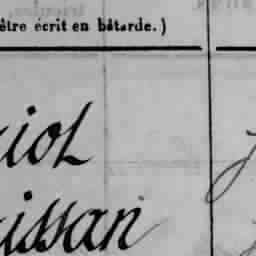 être écrit en bâtarde.)
iol
issan